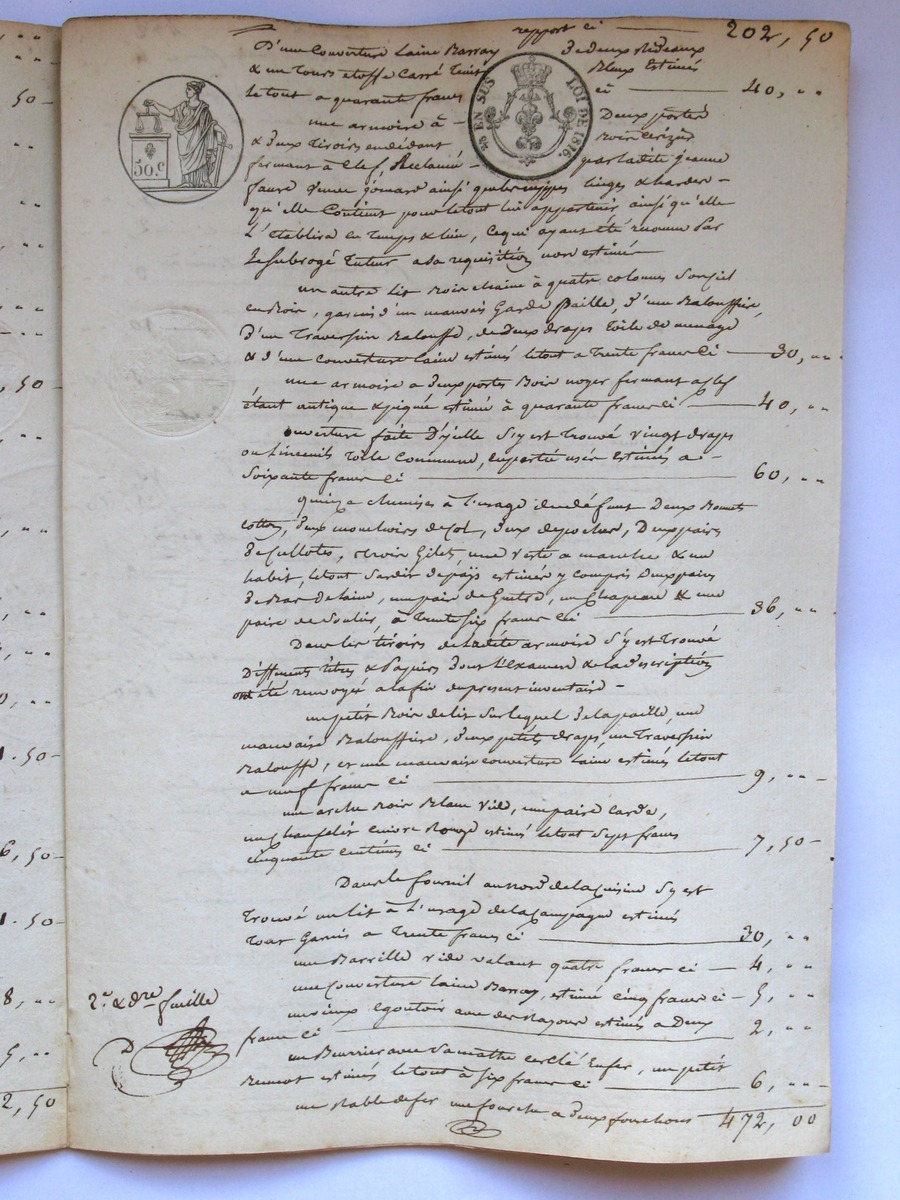 rapport ci 202, 50
D'une Couverture Laine Barray & de deux Rideaux
& un Tours étoffe Carré Teint Bleux Estimés
Le tout a quarante francs ci 40, ""
une armoire à Deux portes
& Deux Tiroirs en dedans Bois Cérizier
fermant à Clef, Réclamé par ladite Jeanne
faure ainsi que les nippes linges & hardes
qu'elle Contient pour le tout lui appartenir ainsi qu'elle
L'établira en Temps & lieu, Ce qui ayant été reconnu Par
Le Subrogé Tuteur a sa requisition non estimée
un autre Lit Bois à quatre colonnes Son Ciel
en Bois, garni d'un mauvais Garde Paille, d'une Balouffière,
D'un Traversin Balouffe, de deux draps Toile de menage
& d'une Couverture laine estimés le tout a Trente francs Ci 30, ""
une armoire a deux portes Bois noyer fermant a Clef
étant antique & piquée estimée à quarante francs ci 40, ""
ouverture faite D'ycelle S'y est Trouvé vingt draps
ou Linceuils Toile Commune, en partie usés estimés a
Soixante francs Ci 60, ""
quinze chemises à l'usage du défunt Deux Bonnets
cotton, deux mouchoirs de Col, deux de poches, Deux paires
de Cullotes, trois Gilets, une Veste a manche & un
habit, le tout Sardis de païs estimés y compris Deux paires
de Bas De laine, une paire de Guêtre, un Chapeau & une
paire de Souliers, à Trente Six francs Ci 36, ""
Dans les tiroirs de ladite armoire S'y est Trouvé
Differents titres & Papiers dont l'Examen & la description
ont été renvoyé a la fin du present inventaire
un petit Bois de lit Sur lequel de la paille, une
mauvaise Balouffière, deux petits draps, un Traversin
Balouffe, et une mauvaise couverture Laine estimés le tout
a neuf francs Ci 9, ""
une arche Bois Blanc Vide, une paire Carde,
un Chaufelit Cuivre Rouge estimés le tout Sept francs
cinquante centimes Ci 7, 50
Dans le fournil au nord de la Cuisine S'y est
Trouvé un lit à L'usage de la Campagne estimé
Tout Garni a Trente francs Ci 30, ""
un Barrille vide valant quatre francs ci 4, ""
une Couverture laine Barray, estimée Cinq francs ci 5, ""
un vieux Egoutoir avec des Razoux estimés a Deux
francs Ci 2, ""
un Beurrier avec Sa cerclé En fer, un petit
estimés le tout à Six francs Ci 6, ""
un Rable de fer une fourche a deux fourchons 472, 00
2.e & dre feuille
50 C.
EN SUS
LOI DE 1816.